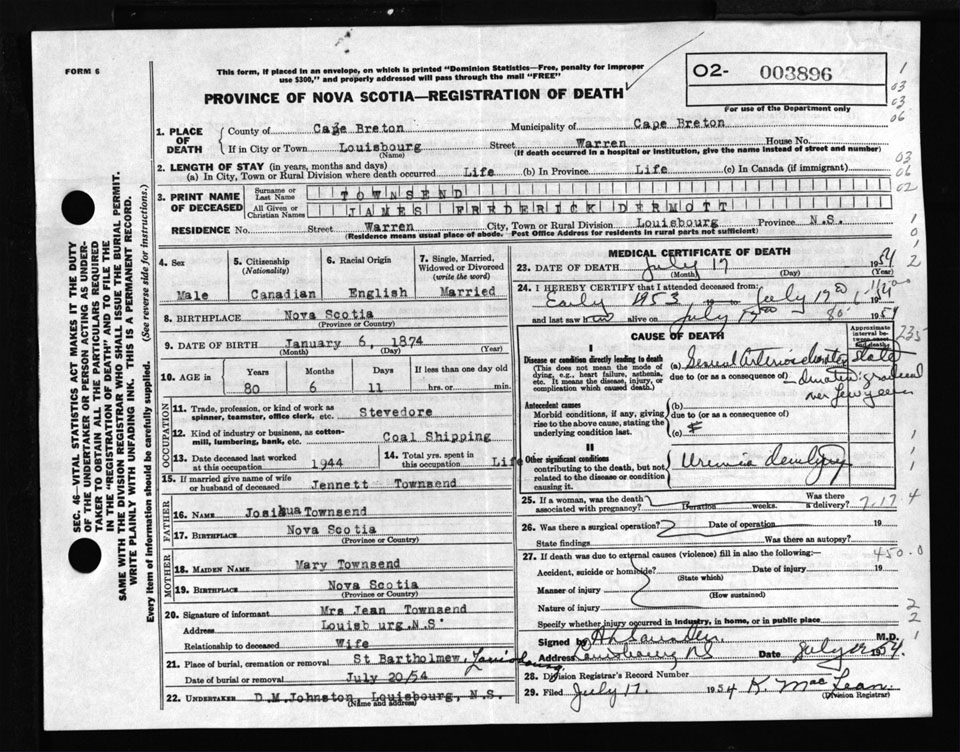 FORM 6
This form, if placed in an envelope, on which is printed "Dominion Statistics—Free, penalty for improper
use $300," and properly addressed will pass through the mail "FREE"
02- 003896
For use of the Department only
PROVINCE OF NOVA SCOTIA—REGISTRATION OF DEATH
1. PLACE OF DEATH
County of Cape Breton Municipality of Cape Breton
If in City or Town Louisbourg Street Warren House No.
(Name) (If death occurred in a hospital or institution, give the name instead of street and number)
2. LENGTH OF STAY (in years, months and days)
(a) In City, Town or Rural Division where death occurred Life (b) In Province Life (c) In Canada (if immigrant)
3. PRINT NAME OF DECEASED
Surname or Last Name TOWNSEND
All Given or Christian Names JAMES FREDERICK DERMOTT
RESIDENCE No. Street Warren City, Town or Rural Division Louisbourg Province N.S.
(Residence means usual place of abode. Post Office Address for residents in rural parts not sufficient)
4. Sex 5. Citizenship (Nationality) 6. Racial Origin 7. Single, Married, Widowed or Divorced (write the word)
Male Canadian English Married
8. BIRTHPLACE Nova Scotia
(Province or Country)
9. DATE OF BIRTH January 6, 1874
(Month) (Day) (Year)
10. AGE in Years Months Days If less than one day old
80 6 11 hrs. or min.
OCCUPATION
11. Trade, profession, or kind of work as spinner, teamster, office clerk, etc. Stevedore
12. Kind of industry or business, as cotton-mill, lumbering, bank, etc. Coal Shipping
13. Date deceased last worked at this occupation 1944 14. Total yrs. spent in this occupation Life
15. If married give name of wife or husband of deceased Jennett Townsend
FATHER
16. NAME Josihua Townsend
17. BIRTHPLACE Nova Scotia
(Province or Country)
MOTHER
18. MAIDEN NAME Mary Townsend
19. BIRTHPLACE Nova Scotia
(Province or Country)
20. Signature of informant Mrs Jean Townsend
Address Louisb urg.N.S
Relationship to deceased Wife
21. Place of burial, cremation or removal St Bartholmew, Louisbourg
Date of burial or removal July 20/54
22. UNDERTAKER D.M.Johnston, Louisbourg, N.S.
(Name and address)
MEDICAL CERTIFICATE OF DEATH
23. DATE OF DEATH July 17 1954
(Month) (Day) (Year)
24. I HEREBY CERTIFY that I attended deceased from:
Early 1953 to July 17
and last saw h alive on July 1954
CAUSE OF DEATH
Approximate interval between onset and death
I
Disease or condition directly leading to death (a)
(This does not mean the mode of dying, e.g., heart failure, asthenia, etc. It means the disease, injury, or complication which caused death.)
due to (or as a consequence of)
gradual
over few years
Antecedent causes (b)
Morbid conditions, if any, giving rise to the above cause, stating the underlying condition last.
due to (or as a consequence of)
(c)
II
Other significant conditions
contributing to the death, but not related to the disease or condition causing it.
Uremia
25. If a woman, was the death associated with pregnancy? Duration weeks. Was there a delivery?
26. Was there a surgical operation? Date of operation 19
State findings Was there an autopsy?
27. If death was due to external causes (violence) fill in also the following:—
Accident, suicide or homicide? Date of injury 19
(State which)
Manner of injury
(How sustained)
Nature of injury
Specify whether injury occurred in industry, in home, or in public place
Signed by M.D.
Address Louisbourg NS Date July 1954.
28. Division Registrar's Record Number
29. Filed July 17. 1954 K. MacLean.
(Division Registrar)
SEC. 46—VITAL STATISTICS ACT MAKES IT THE DUTY
OF THE UNDERTAKER OR PERSON ACTING AS UNDER-
TAKER TO OBTAIN ALL THE PARTICULARS REQUIRED
IN THE "REGISTRATION OF DEATH" AND TO FILE THE
SAME WITH THE DIVISION REGISTRAR WHO SHALL ISSUE THE BURIAL PERMIT.
WRITE PLAINLY WITH UNFADING INK. THIS IS A PERMANENT RECORD.
Every item of information should be carefully supplied. (See reverse side for instructions.)
1
03
03
06
03
06
02
1
0
1
2
235
1
1
7.17 4
450.0
2
2
1